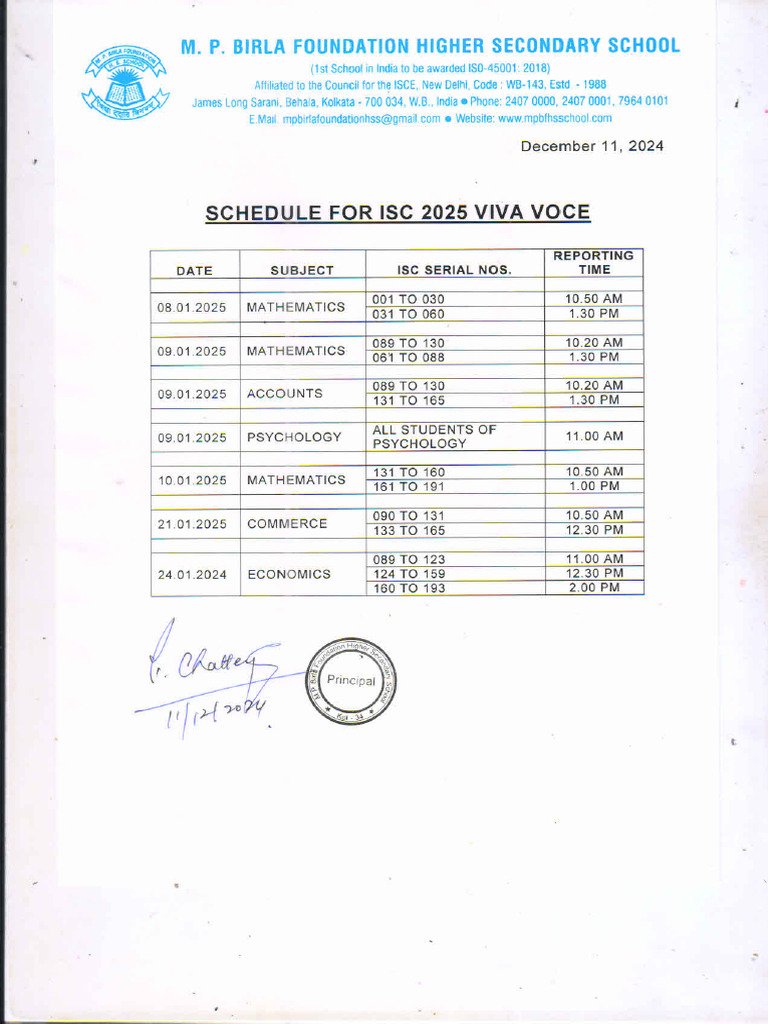 M. P. BIRLA FOUNDATION HIGHER SECONDARY SCHOOL
(1st School in India to be awarded ISO-45001: 2018)
Affiliated to the Council for the ISCE, New Delhi, Code : WB-143, Estd - 1988
James Long Sarani, Behala, Kolkata - 700 034, W.B., India ● Phone: 2407 0000, 2407 0001, 7964 0101
E.Mail. mpbirlafoundationhss@gmail.com ● Website: www.mpbfhsschool.com
M. P. BIRLA FOUNDATION
H. S. SCHOOL
December 11, 2024
SCHEDULE FOR ISC 2025 VIVA VOCE
DATE SUBJECT ISC SERIAL NOS. REPORTING TIME
08.01.2025 MATHEMATICS 001 TO 030 10.50 AM
031 TO 060 1.30 PM
09.01.2025 MATHEMATICS 089 TO 130 10.20 AM
061 TO 088 1.30 PM
09.01.2025 ACCOUNTS 089 TO 130 10.20 AM
131 TO 165 1.30 PM
09.01.2025 PSYCHOLOGY ALL STUDENTS OF PSYCHOLOGY 11.00 AM
10.01.2025 MATHEMATICS 131 TO 160 10.50 AM
161 TO 191 1.00 PM
21.01.2025 COMMERCE 090 TO 131 10.50 AM
133 TO 165 12.30 PM
24.01.2024 ECONOMICS 089 TO 123 11.00 AM
124 TO 159 12.30 PM
160 TO 193 2.00 PM
11/12/2024
M.P. Birla Foundation Higher Secondary School
Principal
Kol - 34